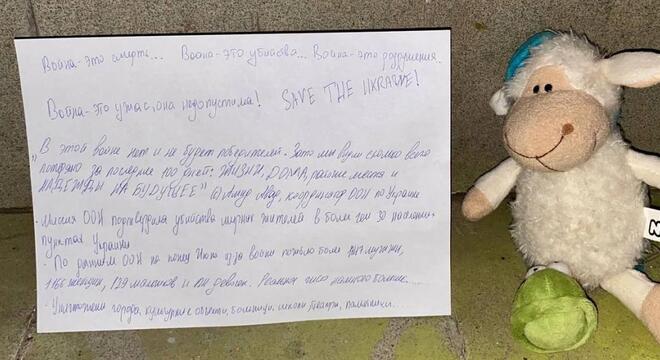 Война-это смерть... Война-это убийства... Война-это разрушения.
Война-это ужас, она недопустима! SAVE THE UKRAINE!
"В этой войне нет и не будет победителей. Зато мы видим сколько всего
потеряно за последние 100 дней: ЖИЗНИ, ДОМА, рабочие места и
НАДЕЖДЫ НА БУДУЩЕЕ" © Амид Авад, координатор ООН по Украине
- Миссия ООН подтвердила убийства мирных жителей в более чем 30 населенных
пунктах Украины
- По данным ООН на конец из-за войны погибло более мужчин,
женщин, мальчиков и девочек. Реальное число намного больше...
- Уничтожены города, культурные объекты, больницы, школы, театры, памятники.
N